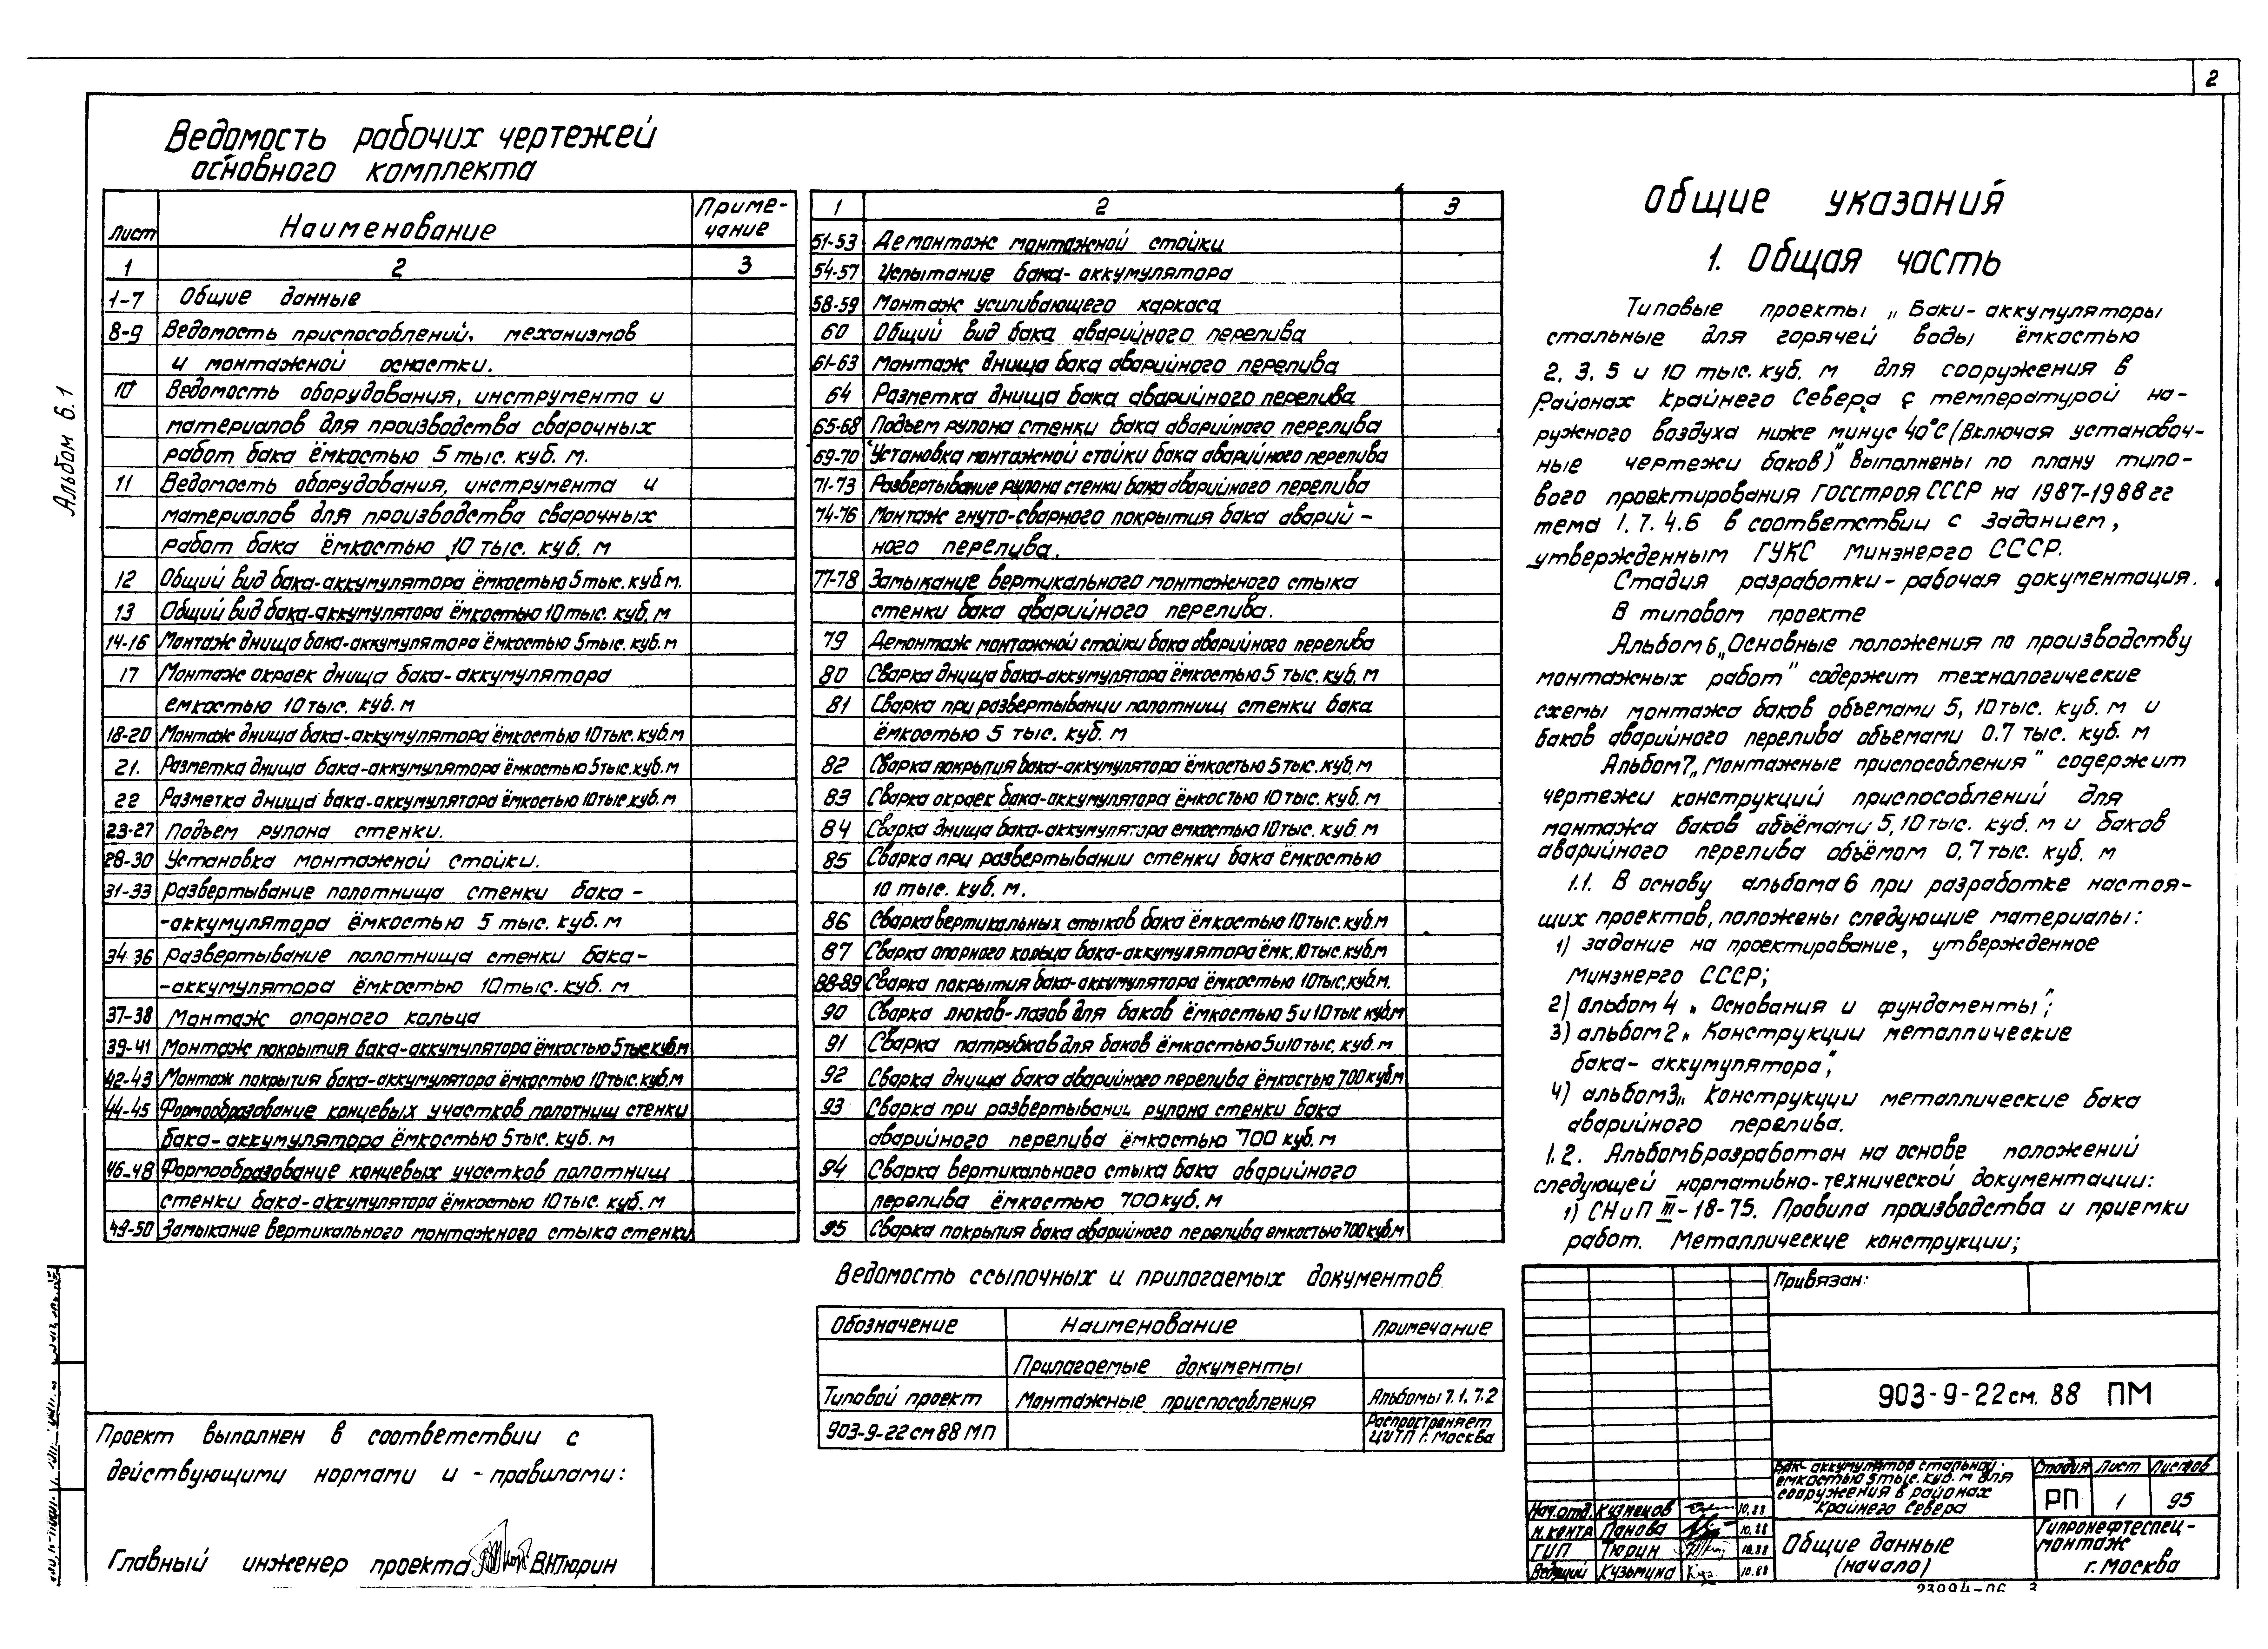 2
Альбом 6.1
Ведомость рабочих чертежей
основного комплекта
Лист Наименование Приме-
чание
1 2 3
1-7 Общие данные
8-9 Ведомость приспособлений, механизмов
и монтажной оснастки.
10 Ведомость оборудования, инструмента и
материалов для производства сварочных
работ бака ёмкостью 5 тыс. куб. м.
11 Ведомость оборудования, инструмента и
материалов для производства сварочных
работ бака ёмкостью 10 тыс. куб. м
12 Общий вид бака-аккумулятора ёмкостью 5 тыс. куб м.
13 Общий вид бака-аккумулятора ёмкостью 10 тыс. куб. м
14-16 Монтаж днища бака-аккумулятора ёмкостью 5 тыс. куб. м
17 Монтаж окраек днища бака-аккумулятора
емкостью 10 тыс. куб. м
18-20 Монтаж днища бака-аккумулятора ёмкостью 10 тыс. куб. м
21. Разметка днища бака-аккумулятора ёмкостью 5 тыс. куб. м
22 Разметка днища бака-аккумулятора ёмкостью 10 тыс куб. м
23-27 Подъем рулона стенки.
28-30 Установка монтажной стойки.
31-33 Развертывание полотнища стенки бака-
-аккумулятора ёмкостью 5 тыс. куб. м
34-36 Развертывание полотнища стенки бака-
-аккумулятора ёмкостью 10 тыс. куб. м
37-38 Монтаж опорного кольца
39-41 Монтаж покрытия бака-аккумулятора ёмкостью 5 тыс. куб. м
42-43 Монтаж покрытия бака-аккумулятора ёмкостью 10 тыс. куб. м
44-45 Формообразование концевых участков полотнищ стенки
бака-аккумулятора ёмкостью 5 тыс. куб. м
46-48 Формообразование концевых участков полотнищ
стенки бака-аккумулятора ёмкостью 10 тыс. куб. м
49-50 Замыкание вертикального монтажного стыка стенки
1 2 3
51-53 Демонтаж монтажной стойки
54-57 Испытание бака-аккумулятора
58-59 Монтаж усиливающего каркаса
60 Общий вид бака аварийного перелива
61-63 Монтаж днища бака аварийного перелива
64 Разметка днища бака аварийного перелива
65-68 Подъем рулона стенки бака аварийного перелива
69-70 Установка монтажной стойки бака аварийного перелива
71-73 Развертывание рулона стенки бака аварийного перелива
74-76 Монтаж гнуто-сварного покрытия бака аварий-
ного перелива.
77-78 Замыкание вертикального монтажного стыка
стенки бака аварийного перелива.
79 Демонтаж монтажной стойки бака аварийного перелива
80 Сварка днища бака-аккумулятора ёмкостью 5 тыс. куб. м
81 Сварка при развертывании полотнищ стенки бака
ёмкостью 5 тыс. куб. м
82 Сварка покрытия бака-аккумулятора ёмкостью 5 тыс. куб. м
83 Сварка окраек бака-аккумулятора ёмкостью 10 тыс. куб. м
84 Сварка днища бака-аккумулятора емкостью 10 тыс. куб. м
85 Сварка при развертывании стенки бака ёмкостью
10 тыс. куб. м.
86 Сварка вертикальных стыков бака ёмкостью 10 тыс. куб. м
87 Сварка опорного кольца бака-аккумулятора ёмк. 10 тыс. куб. м
88-89 Сварка покрытия бака-аккумулятора ёмкостью 10 тыс. куб. м.
90 Сварка люков-лазов для баков ёмкостью 5 и 10 тыс куб. м
91 Сварка патрубков для баков ёмкостью 5 и 10 тыс. куб. м
92 Сварка днища бака аварийного перелива ёмкостью 700 куб. м
93 Сварка при развертывании рулона стенки бака
аварийного перелива ёмкостью 700 куб. м
94 Сварка вертикального стыка бака аварийного
перелива ёмкостью 700 куб. м
95 Сварка покрытия бака аварийного перелива емкостью 700 куб. м
Ведомость ссылочных и прилагаемых документов.
Обозначение Наименование Примечание
Прилагаемые документы
Типовой проект Монтажные приспособления Альбомы 7.1, 7.2
903-9-22 см 88 МП Распространяет
ЦИТП г. Москва
Проект выполнен в соответствии с
действующими нормами и - правилами:
Главный инженер проекта В.Н.Тюрин
Общие указания
1. Общая часть
Типовые проекты „Баки-аккумуляторы
стальные для горячей воды ёмкостью
2, 3, 5 и 10 тыс. куб. м для сооружения в
районах Крайнего Севера с температурой на-
ружного воздуха ниже минус 40°С (включая установоч-
ные чертежи баков)" выполнены по плану типо-
вого проектирования Госстроя СССР на 1987-1988 гг
тема 1. 7. 4. 6 в соответствии с заданием,
утвержденным ГУКС Минэнерго СССР.
Стадия разработки - рабочая документация.
В типовом проекте
Альбом 6 „Основные положения по производству
монтажных работ" содержит технологические
схемы монтажа баков объемами 5, 10 тыс. куб. м и
баков аварийного перелива объемами 0.7 тыс. куб. м
Альбом 7 „Монтажные приспособления" содержит
чертежи конструкций приспособлений для
монтажа баков объёмами 5, 10 тыс. куб. м и баков
аварийного перелива объёмом 0,7 тыс. куб. м
1.1. В основу альбома 6 при разработке настоя-
щих проектов, положены следующие материалы:
1) задание на проектирование, утвержденное
Минэнерго СССР;
2) альбом 4 „ Основания и фундаменты";
3) альбом 2 „ Конструкции металлические
бака-аккумулятора";
4) альбом 3 „ Конструкции металлические бака
аварийного перелива.
1.2. Альбом 6 разработан на основе положений
следующей нормативно-технической документации:
1) СНиП III-18-75. Правила производства и приемки
работ. Металлические конструкции;
Привязан:
903-9-22 см. 88 ПМ
Бак-аккумулятор стальной
ёмкостью 5 тыс. куб. м для
сооружения в районах
Крайнего Севера
Стадия Лист Листов
РП 1 95
Нач. отд. Кузнецов 10.88
Н. контр Панова 10.88
ГИП Тюрин 10.88
Ведущий Кузьмина 10.88
Общие данные
(начало)
Гипронефтеспец-
монтаж
г. Москва
23994-06 3